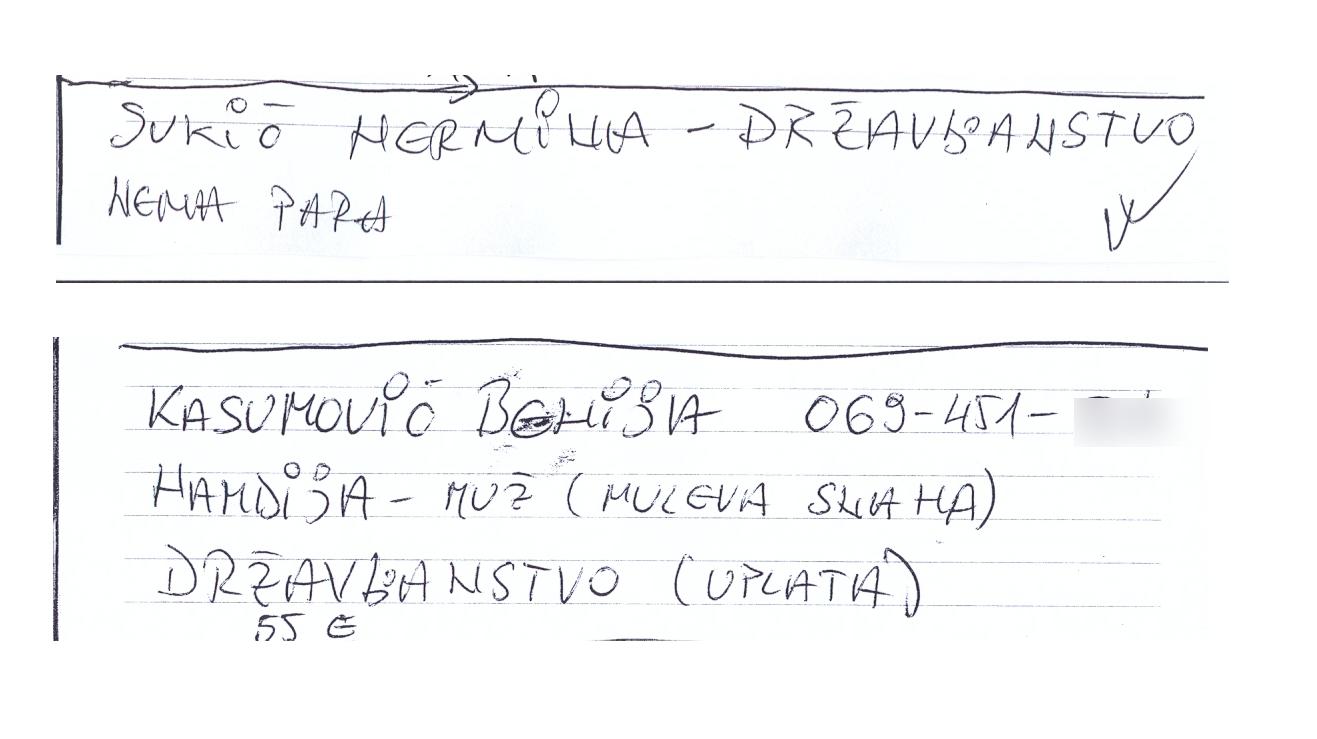 SUKIĆ HERMINA - DRŽAVLJANSTVO
NEMA PARA
KASUMOVIĆ BEHIJA 069-451-
HAMDIJA - MUŽ (MULEVA SNAHA)
DRŽAVLJANSTVO (UPLATA)
55 €